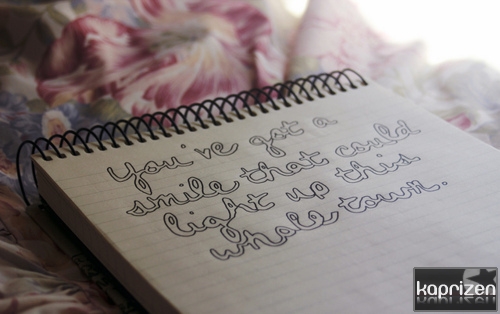 you've got a
smile that could
light up this
whole town.
kaprizen